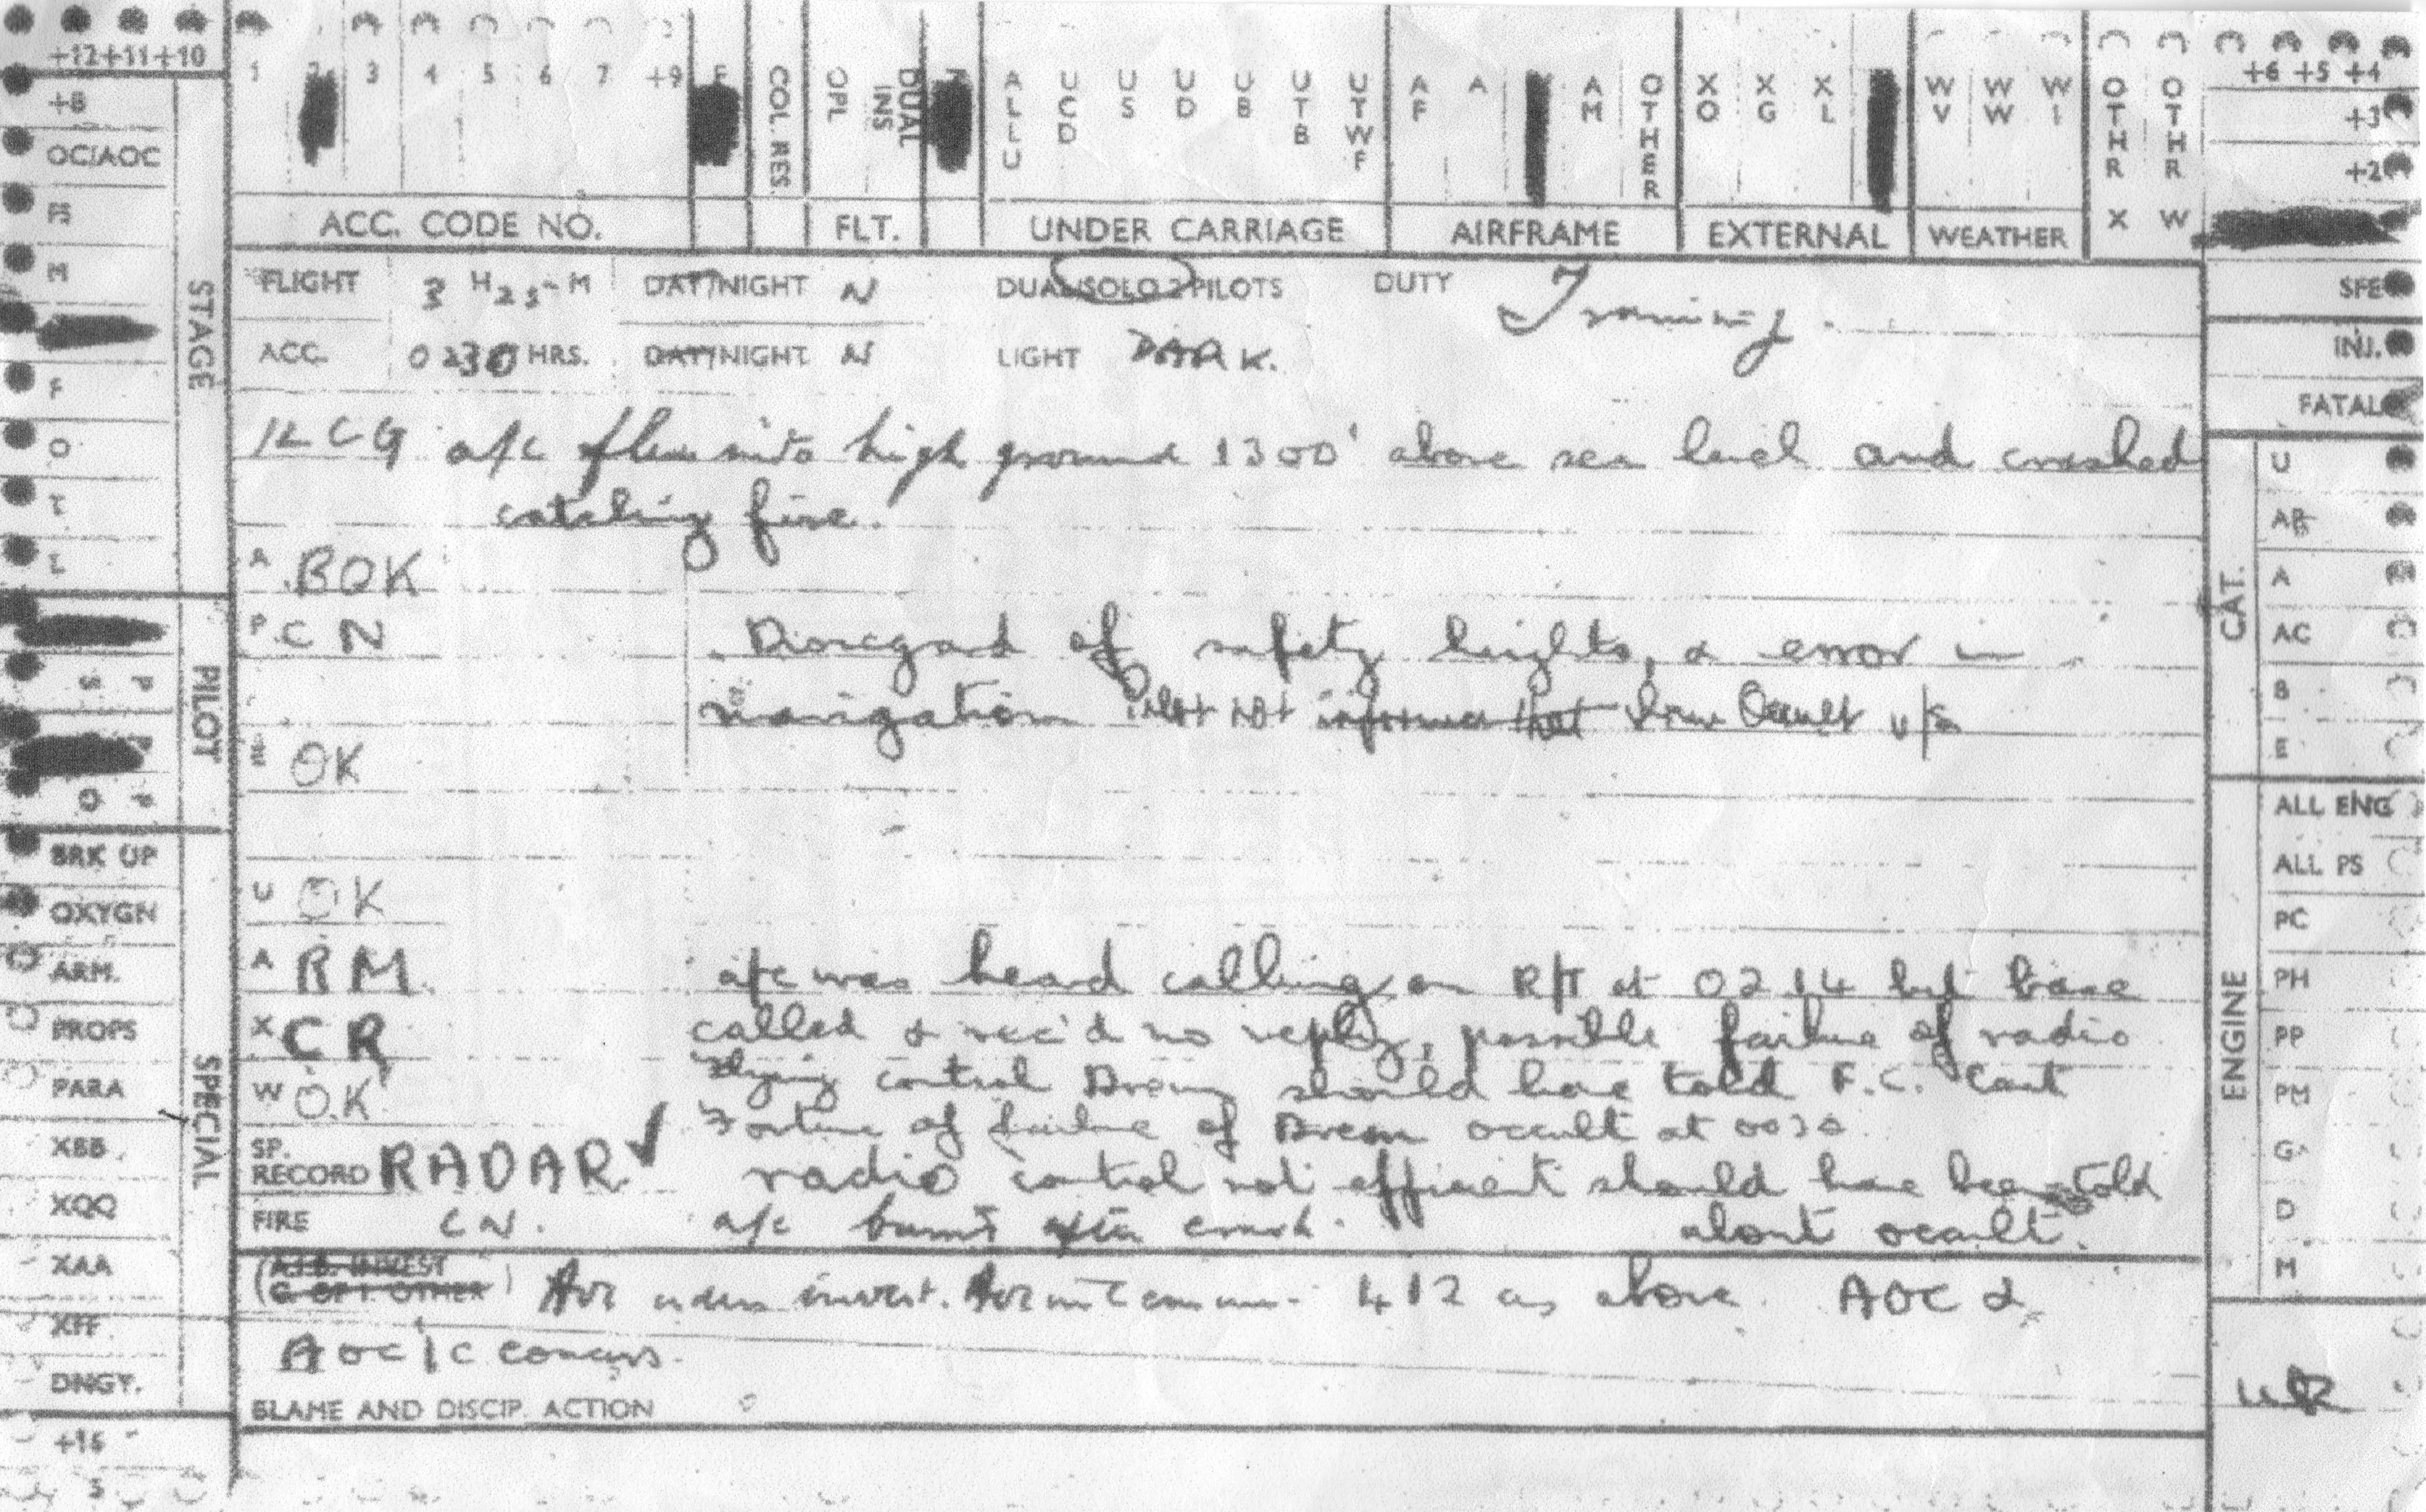 +12 +11 +10
1 3 4 5 6 7 +9 COL. RES. OPL DUAL INS ALLU UCD US UD UB UTB UTWF AF A AM OTHER XO XG XL WV WW WI OTHR X OTHR W
+6 +5 +4
+8
+3
OC/AOC
+2
FS
ACC. CODE NO. FLT. UNDER CARRIAGE AIRFRAME EXTERNAL WEATHER
M
STAGE
FLIGHT 3 H 25 M DAY/NIGHT N DUAL/SOLO 2 PILOTS DUTY Training.
SFE
ACC. 0230 HRS. DAY/NIGHT N LIGHT DARK.
INJ.
F
FATAL
O
a/c flew into high ground 1300' above sea level and crashed
U
T
catching fire.
AR
L
A BOK
A
CAT.
P CN Disregard of safety heights, & error in
AC
PILOT
P S
navigation Pilot not informed that Drem Occult u/s
B
OK
E
P O
ALL ENG
BRK UP
ALL PS
U OK
OXYGN
PC
A RM. a/c was heard calling on R/T at 0214 but base
ARM.
PH
ENGINE
X CR called & rec'd no reply, possible failure of radio
PROPS
PP
W O.K Flying control Drem should have told F.C. East
PARA
PM
SPECIAL
Fortune of failure of Drem occult at
XBB
G
SP. RECORD RADAR ✓ radio control not efficient should have been told
XQQ
D
FIRE CN. a/c burnt after crash. about occult.
XAA
M
(A.I.B. INVEST
G. OF I. OTHER) invest. 412 as above. AOC &
XFF
AOC/C concurs.
DNGY.
BLAME AND DISCIP. ACTION
+16